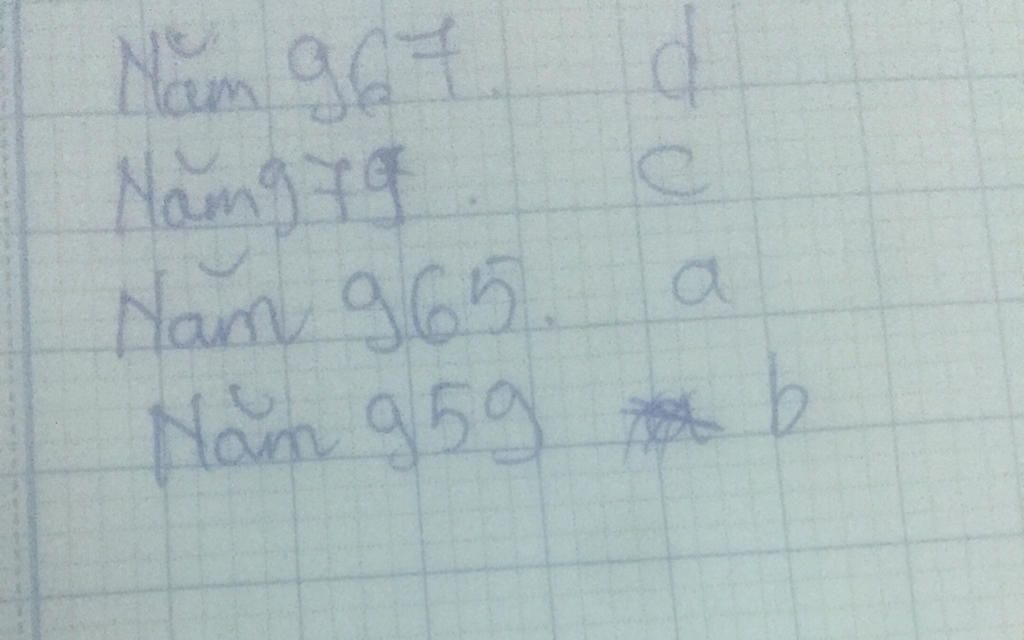 Năm 967. d
Năm 979. c
Năm 965. a
Năm 959 b